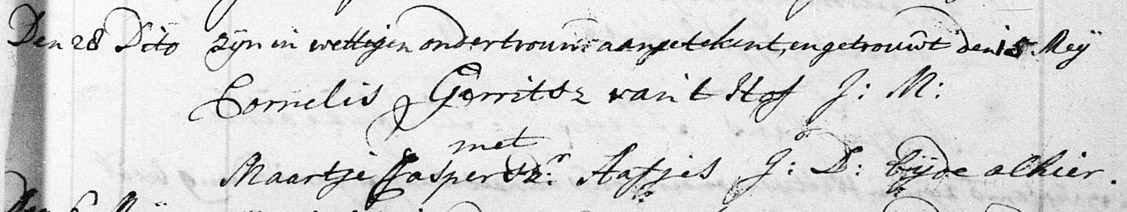 Den 28 Dito zijn in wettigen ondertrouw aangetekent, en getrouwt den 15 Meÿ
Cornelis Gerritsz van't Hof J: M:
met
Maartje Jaspersz: J: D: bÿde alhier.